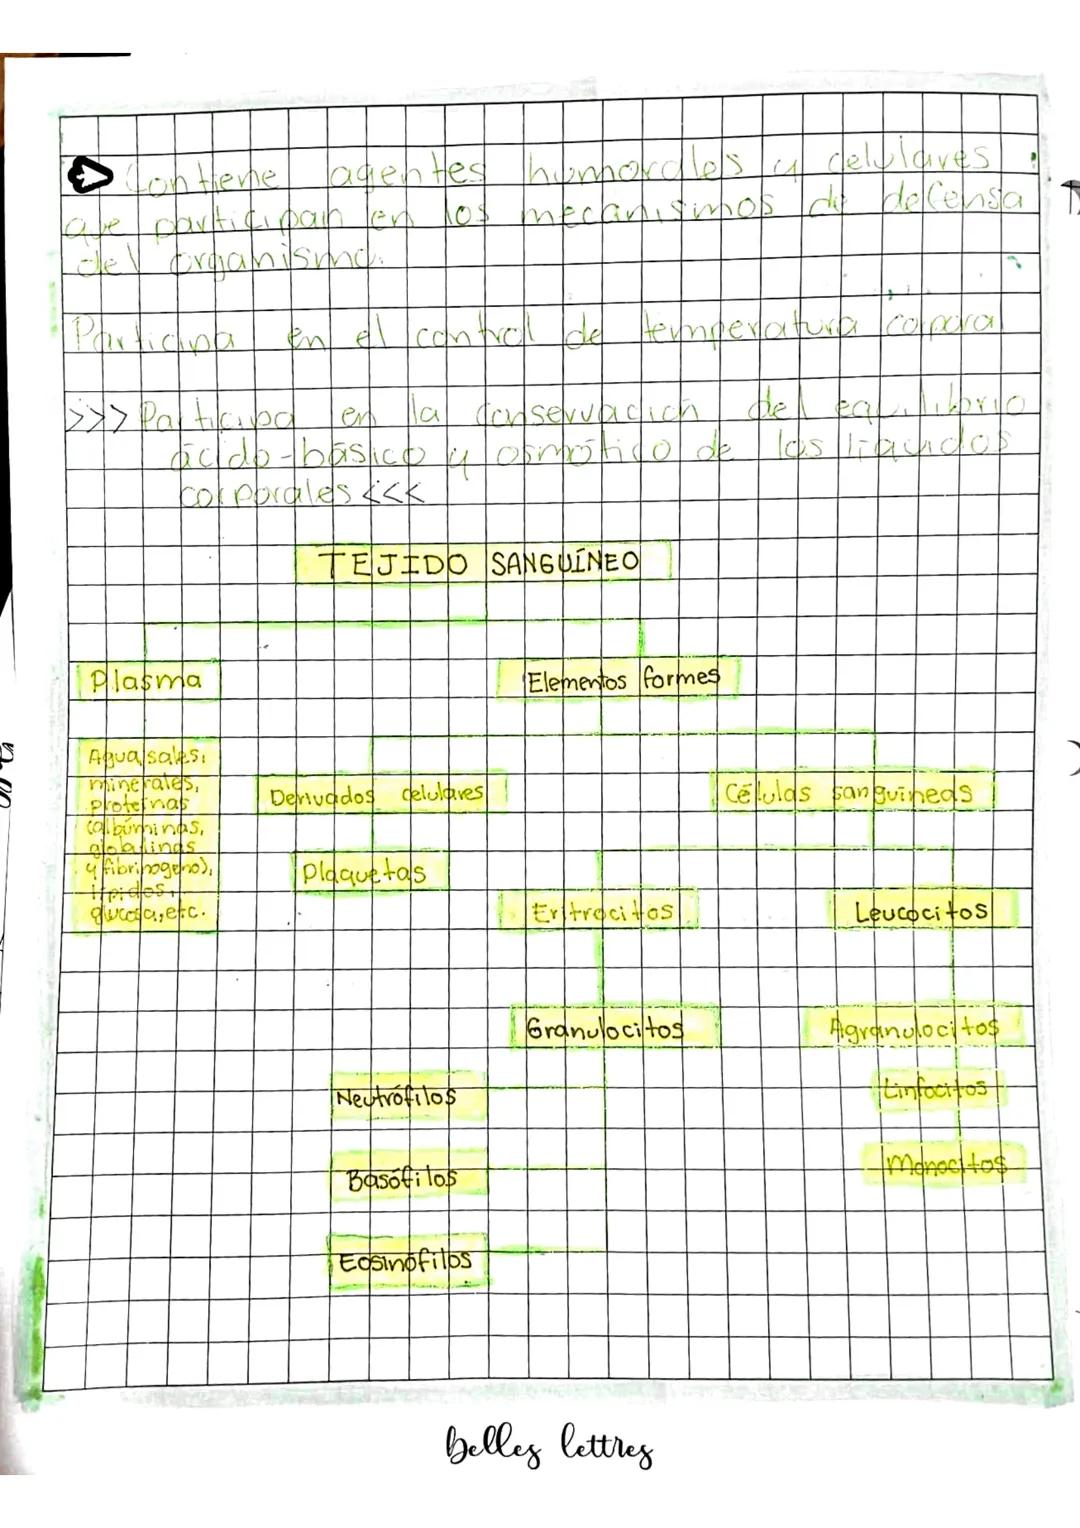 Contiene agentes humorales y celulares
que participan en los mecanismos de defensa
del organismo.
Participa en el control de temperatura corporal
>>> Participa en la conservación del equilibrio
ácido-básico y osmótico de los líquidos
corporales <<<
TEJIDO SANGUÍNEO
Plasma
Elementos formes
Agua, sales,
minerales,
proteínas
(albúminas,
globulinas
y fibrinogeno),
lípidos,
glucosa, etc.
Derivados celulares
Células sanguíneas
Plaquetas
Eritrocitos
Leucocitos
Granulocitos
Agranulocitos
Neutrófilos
Linfocitos
Basófilos
Monocitos
Eosinófilos
belles lettres